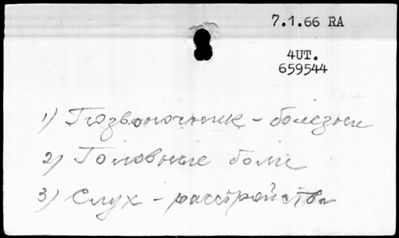 7.1.66 RA
4UT.
659544
1) Позвоночник - болезни
2) Головные боли
3) Слух - расстройства